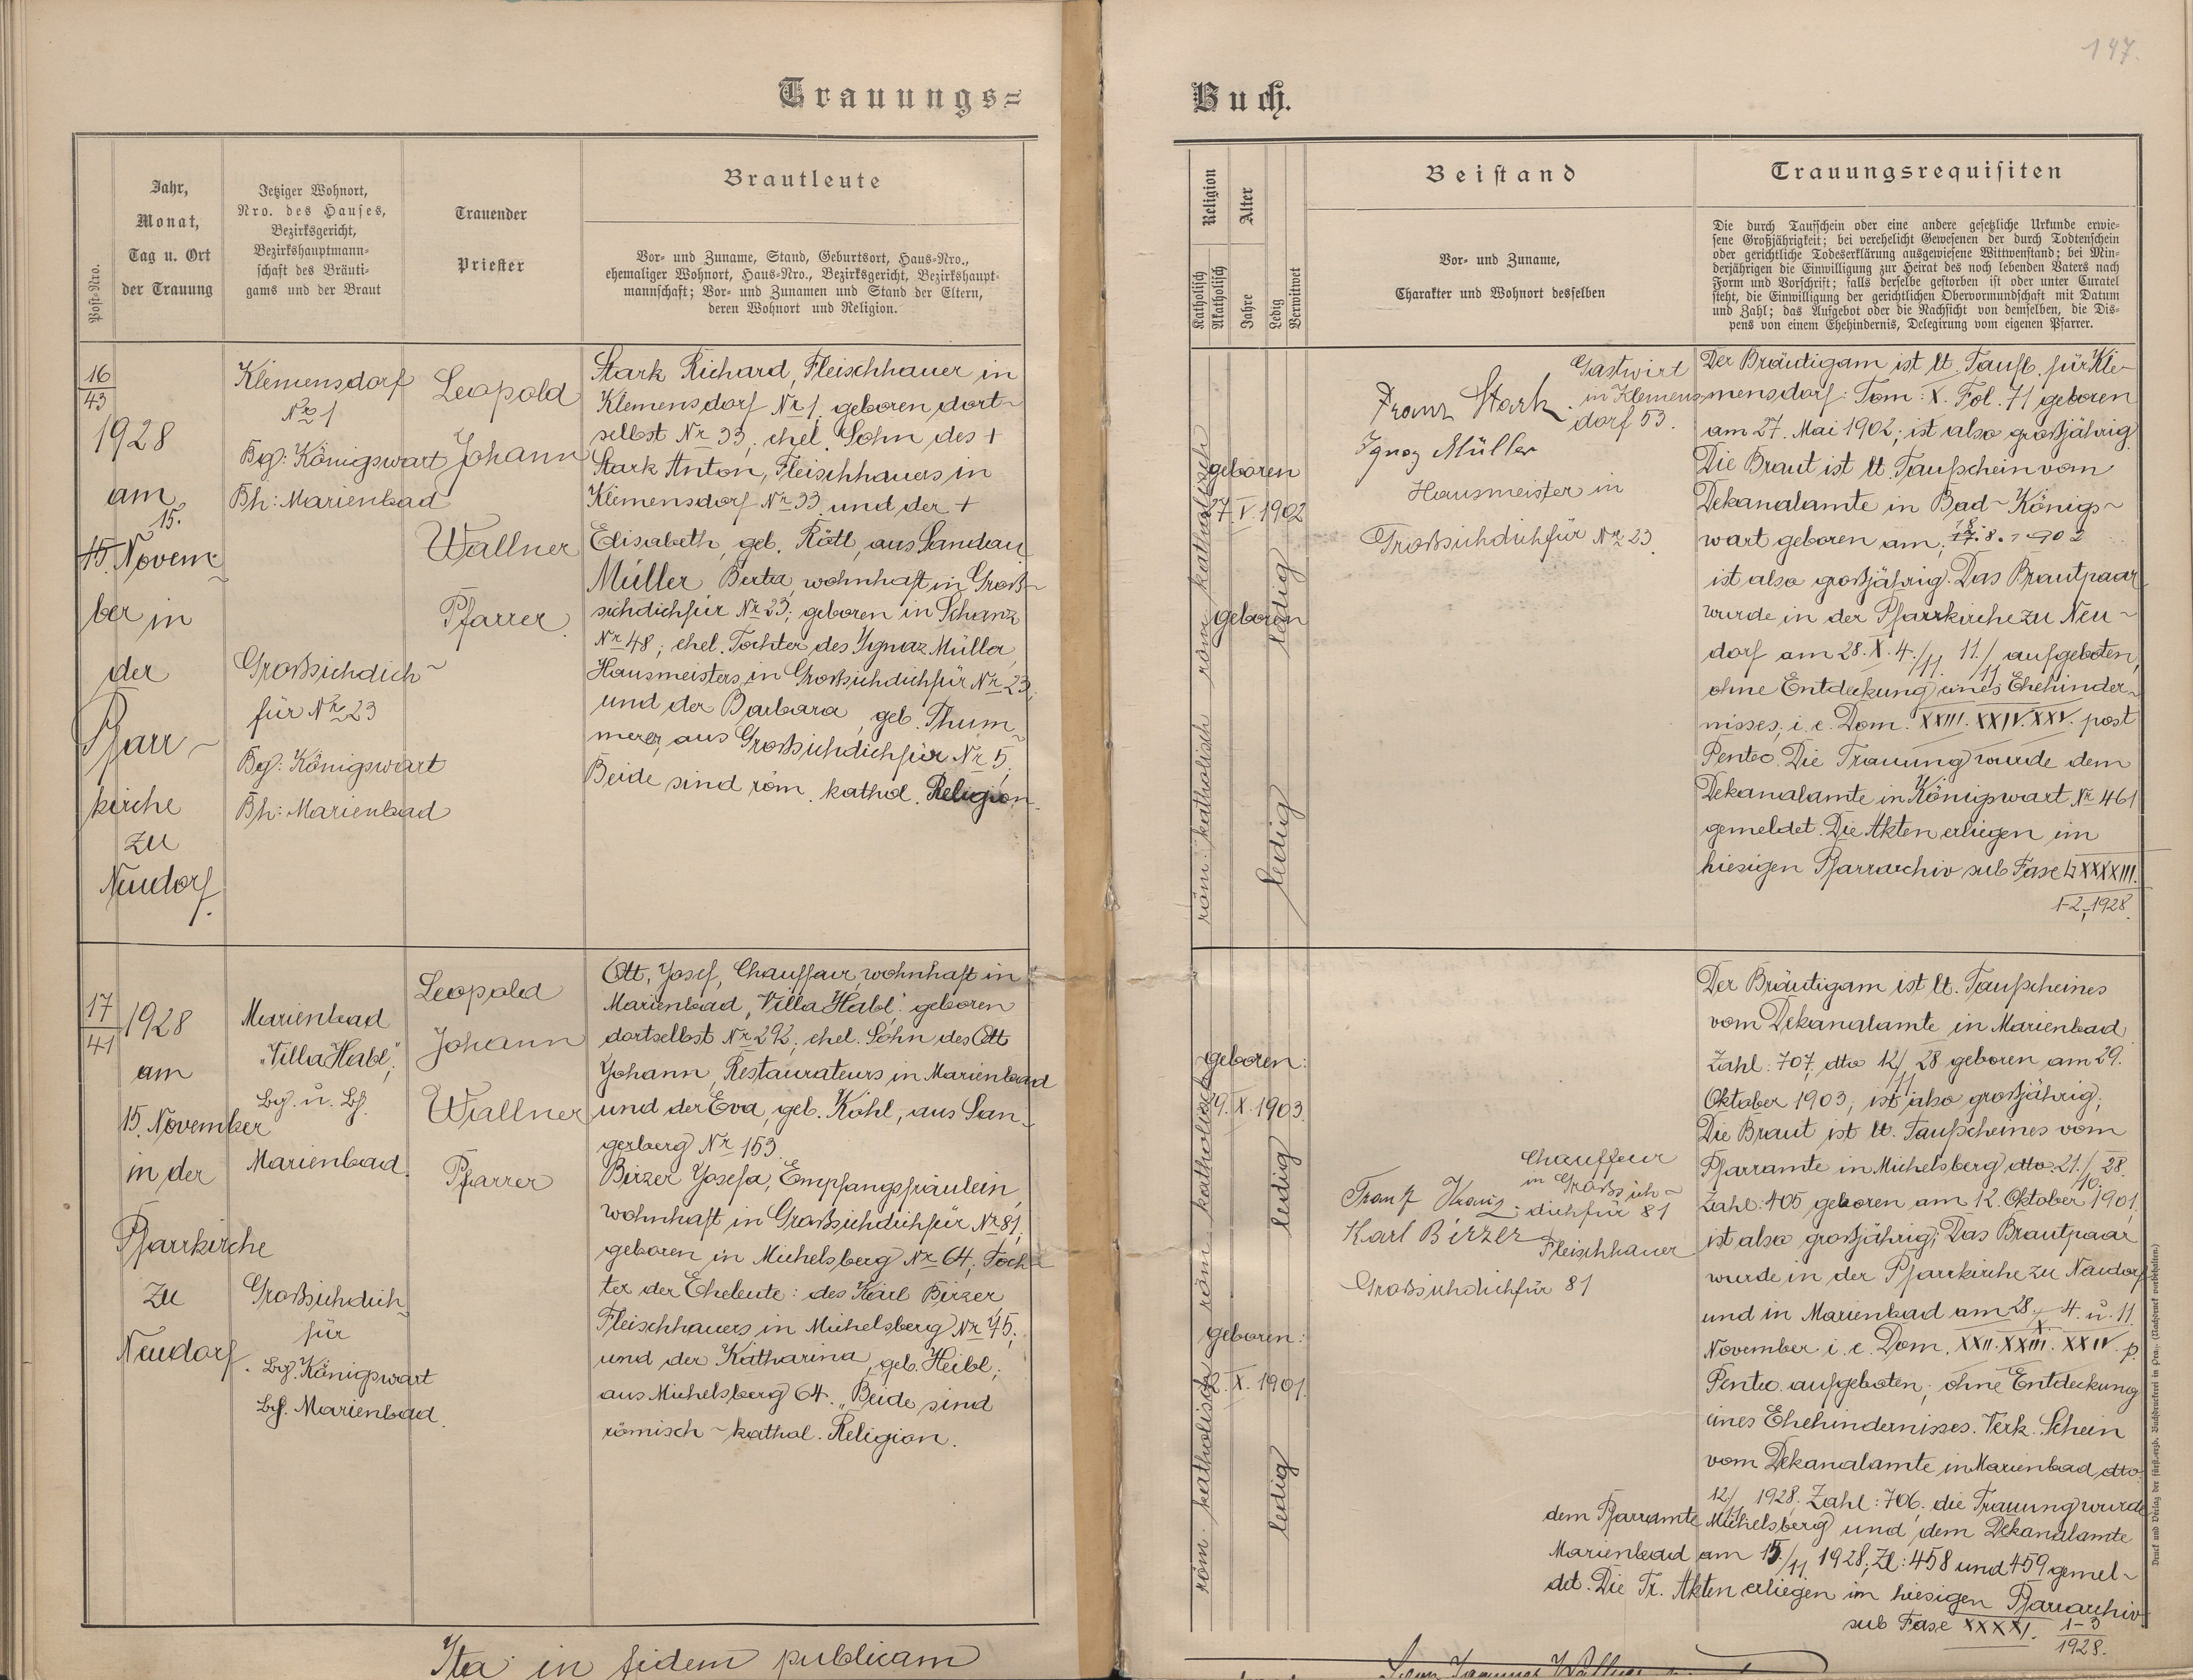 147.
Trauungs=
Buch.
Post-Nro.
Jahr,
Monat,
Tag u. Ort
der Trauung
Jetziger Wohnort,
Nro. des Hauses,
Bezirksgericht,
Bezirkshauptmann-
schaft des Bräuti-
gams und der Braut
Trauender
Priester
Brautleute
Vor- und Zuname, Stand, Geburtsort, Haus-Nro.,
ehemaliger Wohnort, Haus-Nro., Bezirksgericht, Bezirkshaupt-
mannschaft; Vor- und Zunamen und Stand der Eltern,
deren Wohnort und Religion.
Religion
Katholisch
Akatholisch
Alter
Jahre
Ledig
Verwittwet
Beistand
Vor- und Zuname,
Charakter und Wohnort desselben
Trauungsrequisiten
Die durch Taufschein oder eine andere gesetzliche Urkunde erwie-
sene Großjährigkeit; bei verehelicht Gewesenen der durch Todtenschein
oder gerichtliche Todeserklärung ausgewiesene Wittwenstand; bei Min-
derjährigen die Einwilligung zur Heirat des noch lebenden Vaters nach
Form und Vorschrift; falls derselbe gestorben ist oder unter Curatel
steht, die Einwilligung der gerichtlichen Obervormundschaft mit Datum
und Zahl; das Aufgebot oder die Nachsicht von demselben, die Dis-
pens von einem Ehehindernis, Delegirung vom eigenen Pfarrer.
16
43
1928
am
15.
15. Novem-
ber in
der
Pfarr-
kirche
zu
Neudorf.
Klemensdorf
Nr 1
Bg: Königswart
Bh: Marienbad
Großsichdich-
für Nr 23
Bg: Königswart
Bh: Marienbad
Leopold
Johann
Wallner
Pfarrer.
Stark Richard, Fleischhauer in
Klemensdorf Nr 1, geboren dort-
selbst Nr 33, ehel. Sohn des +
Stark Anton, Fleischhauers in
Klemensdorf Nr 33 und der +
Elisabeth, geb. Röttl, aus Sandau
Müller Berta, wohnhaft in Groß-
sichdichfür Nr 23; geboren in Schanz
Nr 48; ehel. Tochter des Ignaz Müller,
Hausmeisters in Großsichdichfür Nr 23,
und der Barbara, geb. Thum-
merer, aus Großsichdichfür Nr 5.
Beide sind röm. kathol. Religion.
röm. katholisch
geboren
27. V. 1902
ledig
röm. katholisch
geboren
ledig
Franz Stark. Gastwirt
in Klemens-
dorf 53.
Ignaz Müller
Hausmeister in
Großsichdichfür Nr 23.
Der Bräutigam ist lt. Taufb. für Kle-
mensdorf: Tom: X. Fol. 71 geboren
am 27. Mai 1902; ist also großjährig.
Die Braut ist lt. Taufschein vom
Dekanalamte in Bad-Königs-
wart geboren am: 8. 1902
ist also großjährig. Das Brautpaar
wurde in der Pfarrkirche zu Neu-
dorf am 28. X. 4./11. 11./11 aufgeboten,
ohne Entdeckung eines Ehehinder-
nisses, i. e. Dom. XXIII. XXIV. XXV. post
Pentec. Die Trauung wurde dem
Dekanalamte in Königswart Nr 461
gemeldet. Die Akten erliegen im
hiesigen Pfarrarchiv sub Fasc
1-2, 1928.
17
41
1928
am
15. November
in der
Pfarrkirche
zu
Neudorf.
Marienbad
"Villa Habl",
Bg. u. Bh.
Marienbad.
Großsichdich-
für
Bg. Königswart
Bh. Marienbad.
Leopold
Johann
Wallner
Pfarrer
Ott, Josef, Chauffeur, wohnhaft in
Marienbad, "Villa Habl", geboren
dortselbst Nr 292, ehel. Sohn des Ott
Johann, Restaurateurs in Marienbad
und der Eva, geb. Köhl, aus San-
gerberg Nr 153.
Birzer Josefa, Empfangsfräulein,
wohnhaft in Großsichdichfür Nr 81,
geboren in Michelsberg Nr 64, Toch-
ter der Eheleute: des Karl Birzer
Fleischhauers in Michelsberg Nr 45,
und der Katharina, geb. Heibl,
aus Michelsberg 64. Beide sind
römisch-kathol. Religion.
röm. katholisch
geboren:
29. X. 1903.
ledig
röm. katholisch
geboren:
12. X. 1901.
ledig
Franz Chauffeur
in Großsich-
dichfür 81
Karl Birzer Fleischhauer
Großsichdichfür 81
Der Bräutigam ist lt. Taufscheines
vom Dekanalamte in Marienbad
Zahl: 707, dto 12/11 28 geboren am 29.
Oktober 1903, ist also großjährig;
Die Braut ist lt. Taufscheines vom
Pfarramte in Michelsberg dto 21./10. 28.
Zahl: 405 geboren am 12. Oktober 1901,
ist also großjährig; Das Brautpaar
wurde in der Pfarrkirche zu Neudorf
und in Marienbad am 28./X. 4. u. 11.
November i. e. Dom. XXII. XXIII. XXIV. p.
Pentec. aufgeboten, ohne Entdeckung
eines Ehehindernisses. Verk. Schein
vom Dekanalamte in Marienbad dto
12/11 1928. Zahl: 706, die Trauung wurde
dem Pfarramte Michelsberg und dem Dekanalamte
Marienbad am 15/11 1928, Zl: 458 und 459 gemel-
det. Die Tr. Akten erliegen im hiesigen Pfarrarchiv
sub Fasc XXXXI. 1-3
1928.
Ita in fidem publicam
Druck und Verlag der fürst.erzb. Buchdruckerei in Prag. (Nachdruck vorbehalten.)